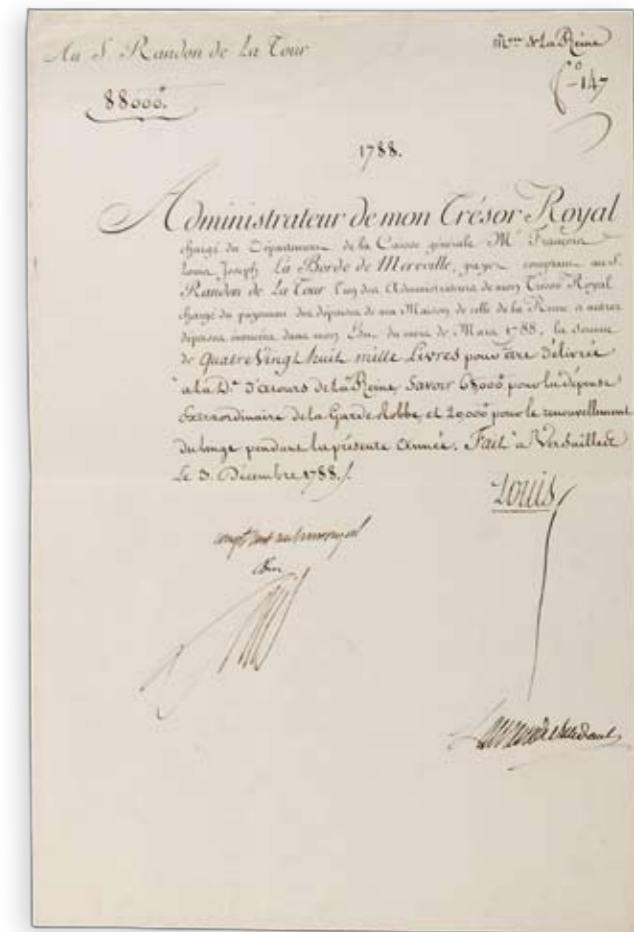 Au S. Randon de La Tour
M.on de La Reine
88000.#
f.o 147
1788.
Administrateur de mon Trésor Royal
chargé du Département de la Caisse générale M.r François
Louis Joseph La Borde de Mereville, payez comptant au S.
Randon de La Tour l'un des Administrateurs de mon Trésor Royal
chargé du payement des dépenses de ma Maison de celle de la Reine et autres
dépenses énoncées dans mon Edit du mois de Mars 1788, la somme
de Quatre Vingt huit mille Livres pour être délivrée
a la D.e d'atours de la Reine, Savoir 68000.# pour la dépense
Extraordinaire de la Garde Robbe, et 20000.# pour le renouvellement
du linge pendant la présente Année. Fait a Versailles
Le 3. Décembre 1788./.
Louis
comptant au tresor royal
bon